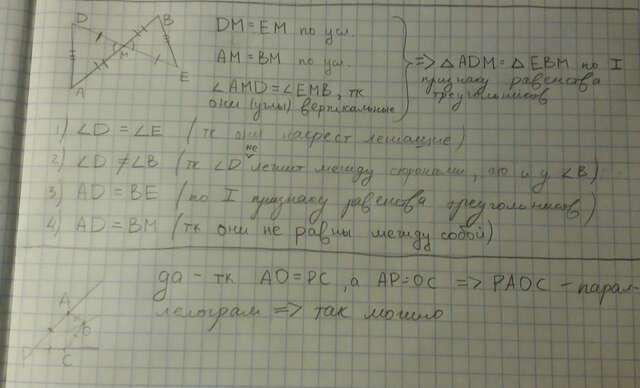 D B M A E
DM = EM по усл.
AM = BM по усл.
∠AMD = ∠EMB, тк
они (углы) вертикальные
=> △ADM = △EBM по I
признаку равенства
треугольников
1) ∠D = ∠E (тк они накрест лежащие)
2) ∠D ≠ ∠B (тк ∠D не лежит между сторонами, но и у ∠B)
3) AD = BE (по I признаку равенства треугольников)
4) AD = BM (тк они не равны между собой)
A
C
да - тк AO = PC, а AP = OC => PAOC - парал-
лелограм => так можно